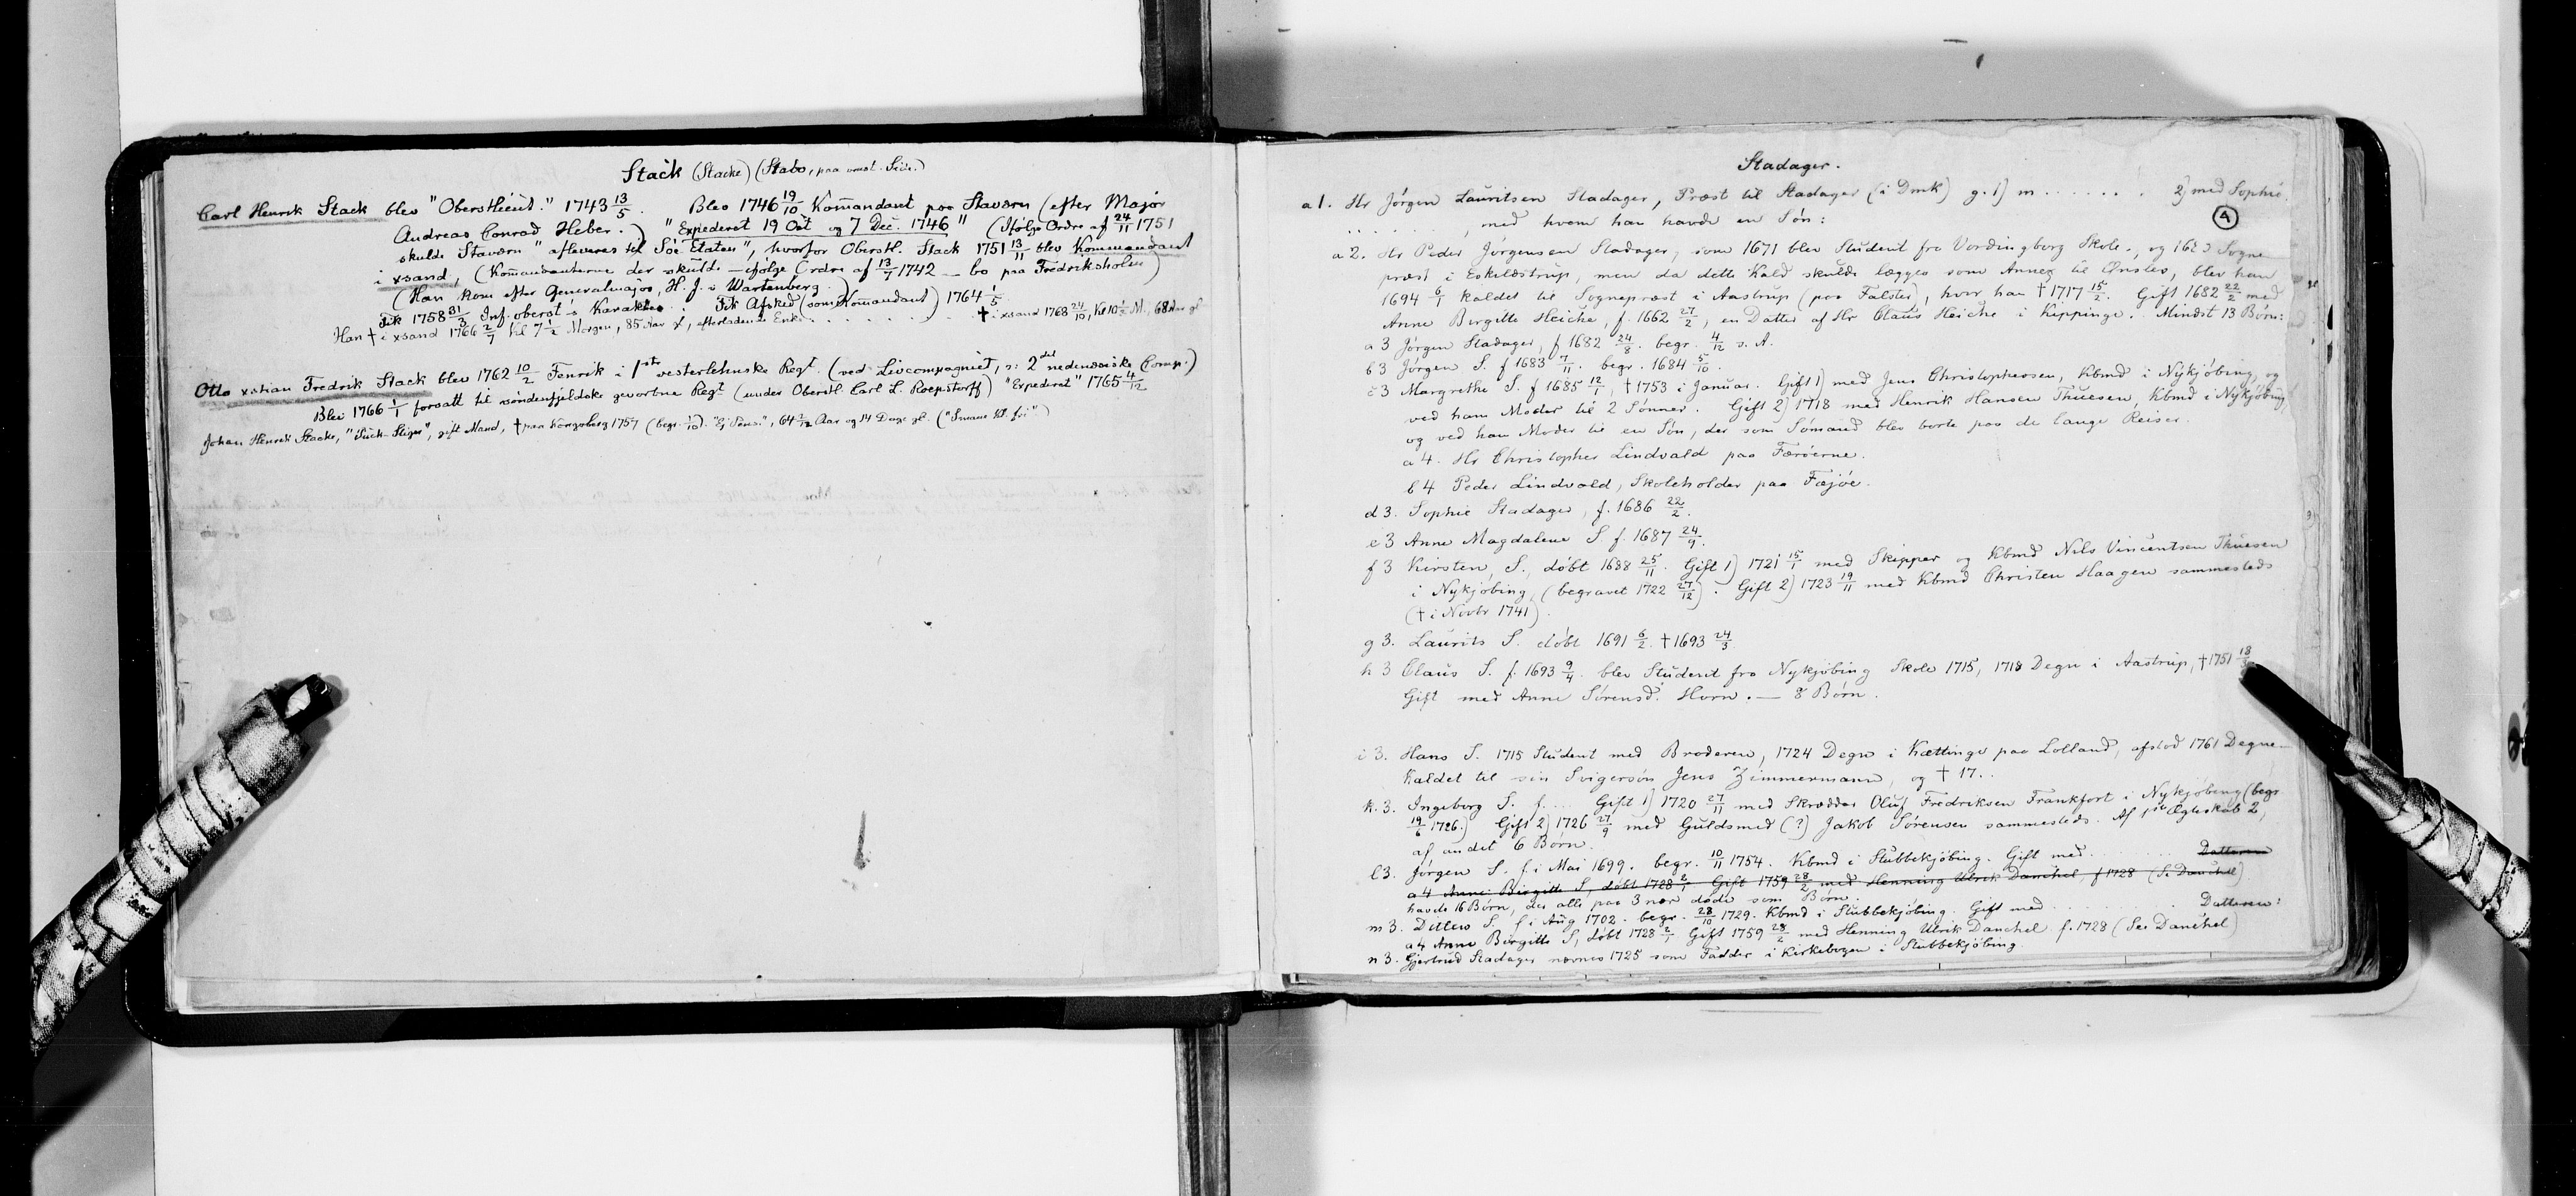 Stack (Stacke) (Stabo, paa modst. Side.)
Carl Henrik Stack blev "Oberstlieut." 1743 13/5. Blev 1746 19/10 Kom̄andant paa Staværn (efter Major
Andreas Conrad Heber.) "Expederet 19 Oct og 7 Dec. 1746" (Ifølge Ordre af 24/11 1751
skulde Staværn "afleveres til Söe Etaten", hvorfor Oberstl. Stack 1751 13/11 blev Kommandant
i xsand, (Kom̄andanterne der skulde – ifølge Ordre af 13/7 1742 – bo paa Fredriksholm)
(Han kom efter Generalmajor, H. J. v Wartenberg.)
Fik 1758 31/3 Inf. oberst's Karakter. Fik Afsked (som Kom̄andant) 1764 1/5.
Han † i xsand 1766 2/7 Kl 7 1/2 Morgen, 85 Aar gl, efterladende Enke . . . . . . . . . † i xsand 1768 24/10, Kl 10 1/2 M., 68 Aar gl
Otto xstian Fredrik Stack blev 1762 10/2 Fenrik i 1ste vesterlehnske Regt. (ved Livcompagniet, ɔ: 2det nedenæsiske Comp.)
Blev 1766 1/1 forsatt til söndenfjeldske gevorbne Regt (under Oberstl. Carl L. Roepstorff) "Expederet" 1765 4/12
Johan Henrik Stacke, "Stuck-Stiger", gift Mand, † paa Kongsberg 1757 (begr. 1/10). 64 2/12 Aar og 14 Dage gl.
Stadager.
a 1. Hr Jørgen Lauritsen Stadager, Præst til Stadager (i Dmk) g. 1) m . . . . . . 2) med Sophie
. . . . . . . , med hvem han havde en Søn: 4
a 2. Hr Peder Jørgensen Stadager, som 1671 blev Student fra Vordingborg Skole, og Sogne-
præst i Eskeldstrup, men da dette Kald skulde lægges som Annex til Ønslev, blev han
1694 6/1 kaldet til Sognepræst i Aastrup (paa Falster), hvor han † 1717 15/2. Gift 1682 22/2 med
Anne Birgitte Heiche, f. 1662 27/2, en Datter af Hr Claus Heiche i Kippinge. Mindst 13 Børn:
a 3 Jørgen Stadager, f 1682 24/8. begr. 4/12 s. A.
b 3 Jørgen S. f 1683 7/11. begr. 1684 5/10.
c 3 Margrethe S. f 1685 12/1, † 1753 i Januar. Gift 1) med Jens Christophersen, Kbmd i Nykjøbing, og
ved ham Moder til 2 Sønner. Gift 2) 1718 med Henrik Hansen Thuesen, Kbmd i Nykjøbing,
og ved ham Moder til en Søn, der som Sømand blev borte paa de lange Reiser.
a 4. Hr Christopher Lindvald paa Færöerne.
b 4 Peder Lindvald, Skoleholder paa Fæjöe.
d 3. Sophie Stadager, f. 1686 22/2.
e 3 Anne Magdalene S f. 1687 24/9.
f 3 Kirsten, S., døbt 1688 25/11. Gift 1) 1721 15/1 med Skipper og Kbmd Nils Vincentsen Thuesen
i Nykjøbing (begravet 1722 27/12). Gift 2) 1723 19/11 med Kbmd Christen Haagen sammesteds
(† i Novbr 1741).
g 3. Laurits S. døbt 1691 6/2. † 1693 24/3.
h 3 Claus S. f. 1693 9/4. blev Student fra Nykjøbing Skole 1715, 1718 Degn i Aastrup, † 1751
Gift med Anne Sørensd. Horn. — 8 Børn.
i 3. Hans S. 1715 Student med Broderen, 1724 Degn i Kættinge paa Lolland, afstod 1761 Degne-
kaldet til sin Svigersøn Jens Zimmermann, og † 17..
k. 3. Ingeborg S. f. ... Gift 1) 1720 27/11 med Skrædder Oluf Fredriksen Frankfort i Nykjøbing (begr
19/6 1726.) Gift 2) 1726 27/9 med Guldsmed (?) Jakob Sørensen sammesteds. Af 1ste Ægteskab 2,
af andet 6 Børn.
l 3. Jørgen S. f. i Mai 1699. begr. 10/11 1754. Kbmd i Stubbekjøbing. Gift med . . . . . . Datteren
a 4 Anne Birgitte S, døbt 1728 2/1 Gift 1759 28/2 med Henning Ulrik Danchel, f 1728 (Se Danchel)
havde 16 Børn, der alle paa 3 nær døde som Børn.
m 3. Ditlev S. f. i Aug 1702. begr. 28/10 1729. Kbmd i Stubbekjøbing. Gift med . . . . . . Datteren:
a 4 Anne Birgitte S, døbt 1728 2/1 Gift 1759 28/2 med Henning Ulrik Danchel f. 1728 (Se Danchel)
n 3. Gjertrud Stadager nævnes 1725 som Fadder i Kirkebogen i Stubbekjøbing.